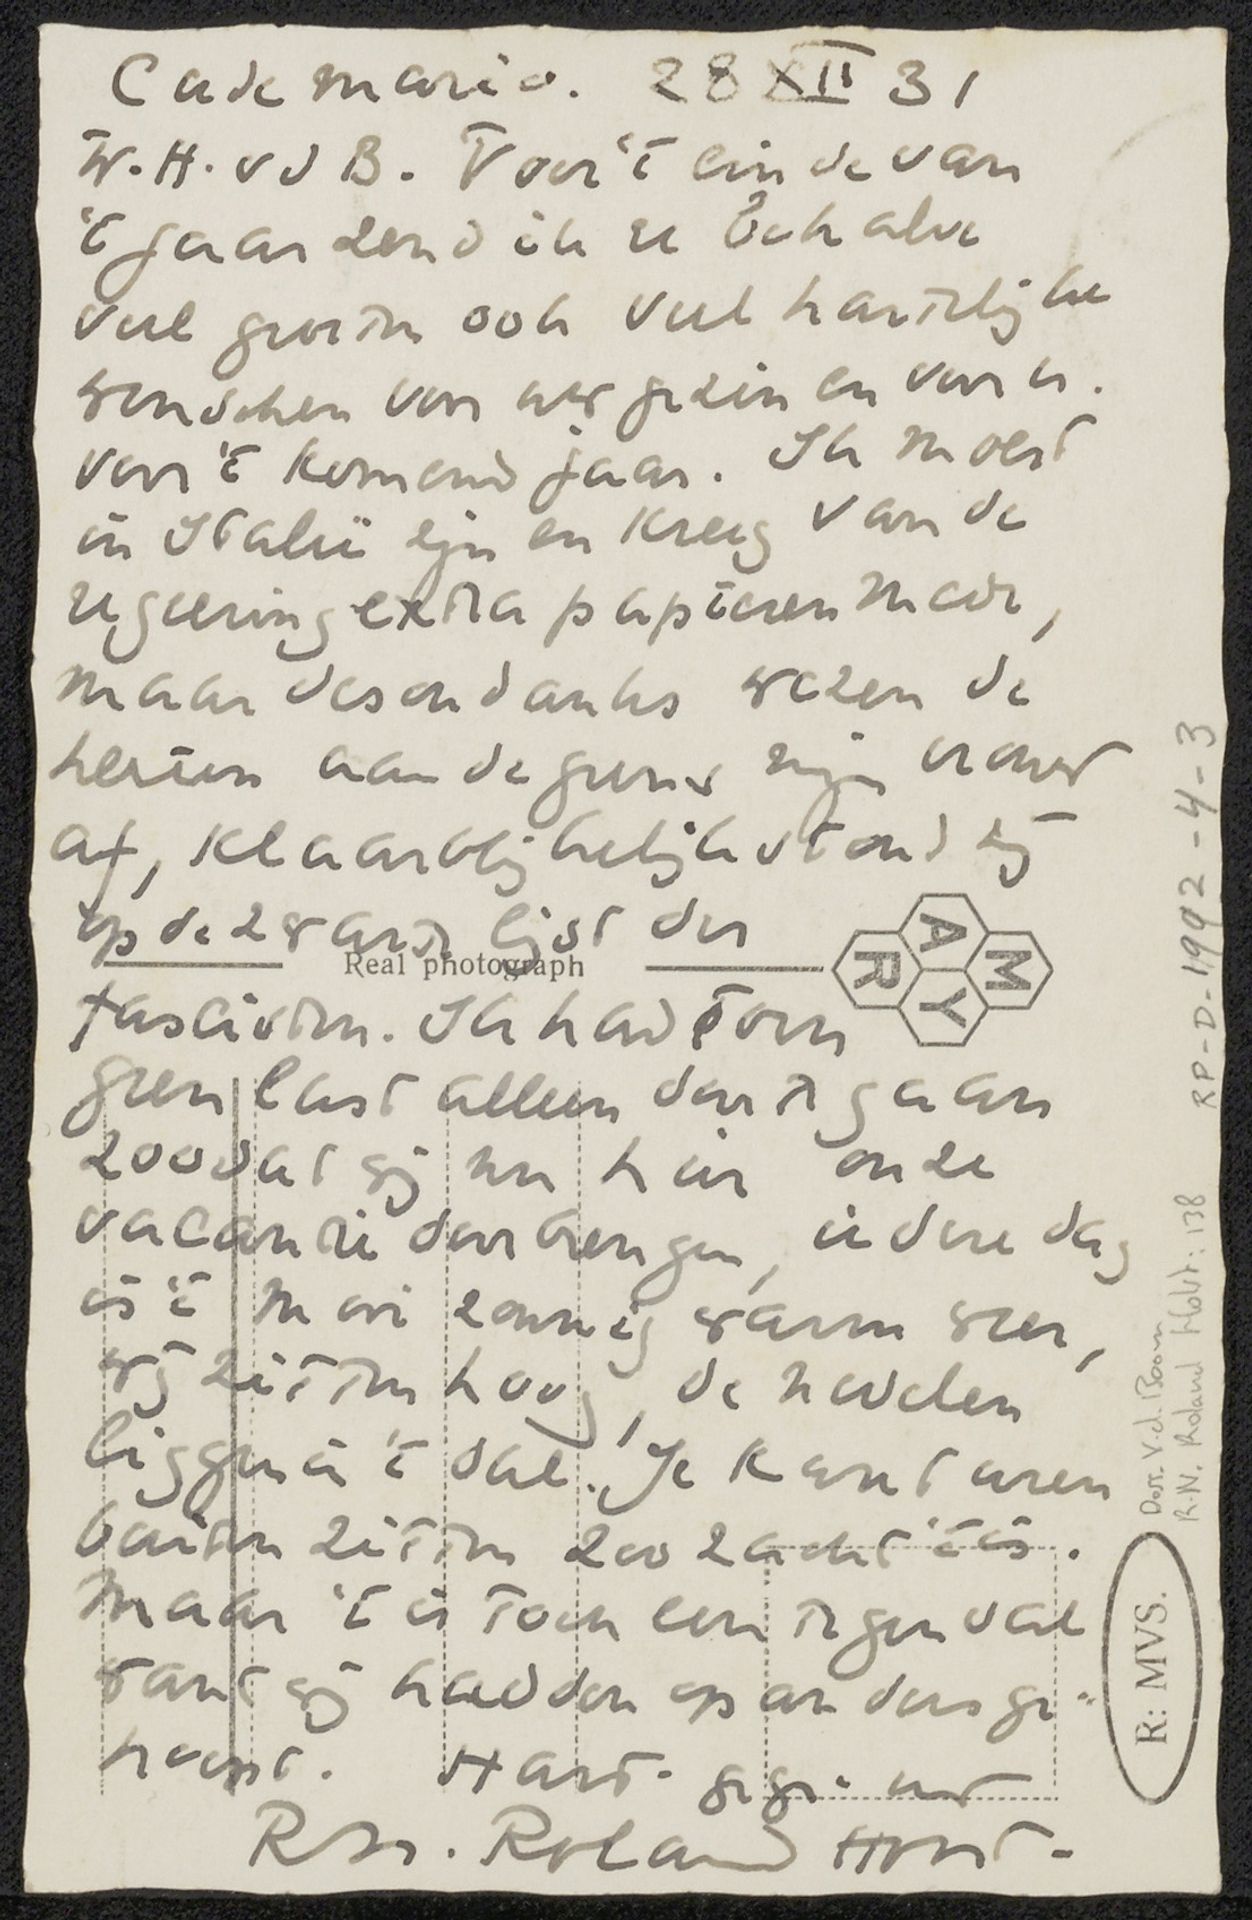 Cademario. 28 XII 31
W. H. v d B. Voor 't einde van
't jaar zend ik u behalve
veel groeten ook veel hartelijke
wenschen voor uw gezin en voor u.
voor 't komend jaar. Ik moest
in Italië zijn en kreeg van de
regeering extra papieren mede,
maar desondanks wezen de
heeren aan de grens mijn vrouw
af, klaarblijkelijk stond zij
op de zwarte lijst der
Real photograph
MARY
fascisten. Ik had toen
geen lust alleen door te gaan
zoodat wij nu hier onze
vacantie doorbrengen, iedere dag
is 't mooi zonnig warm weer,
wij zitten hoog, de nevelen
liggen in 't dal. Je kunt uren
buiten zitten zoo zacht 't is.
Maar 't is toch een tegenval
want wij hadden op anders ge-
hoopt. Hart. gegr. uw
R.N. Roland Holst.
RP-D-1992-4-3
Doss. V.d. Boom
R.N. Roland Holst: 138
R: MVS.